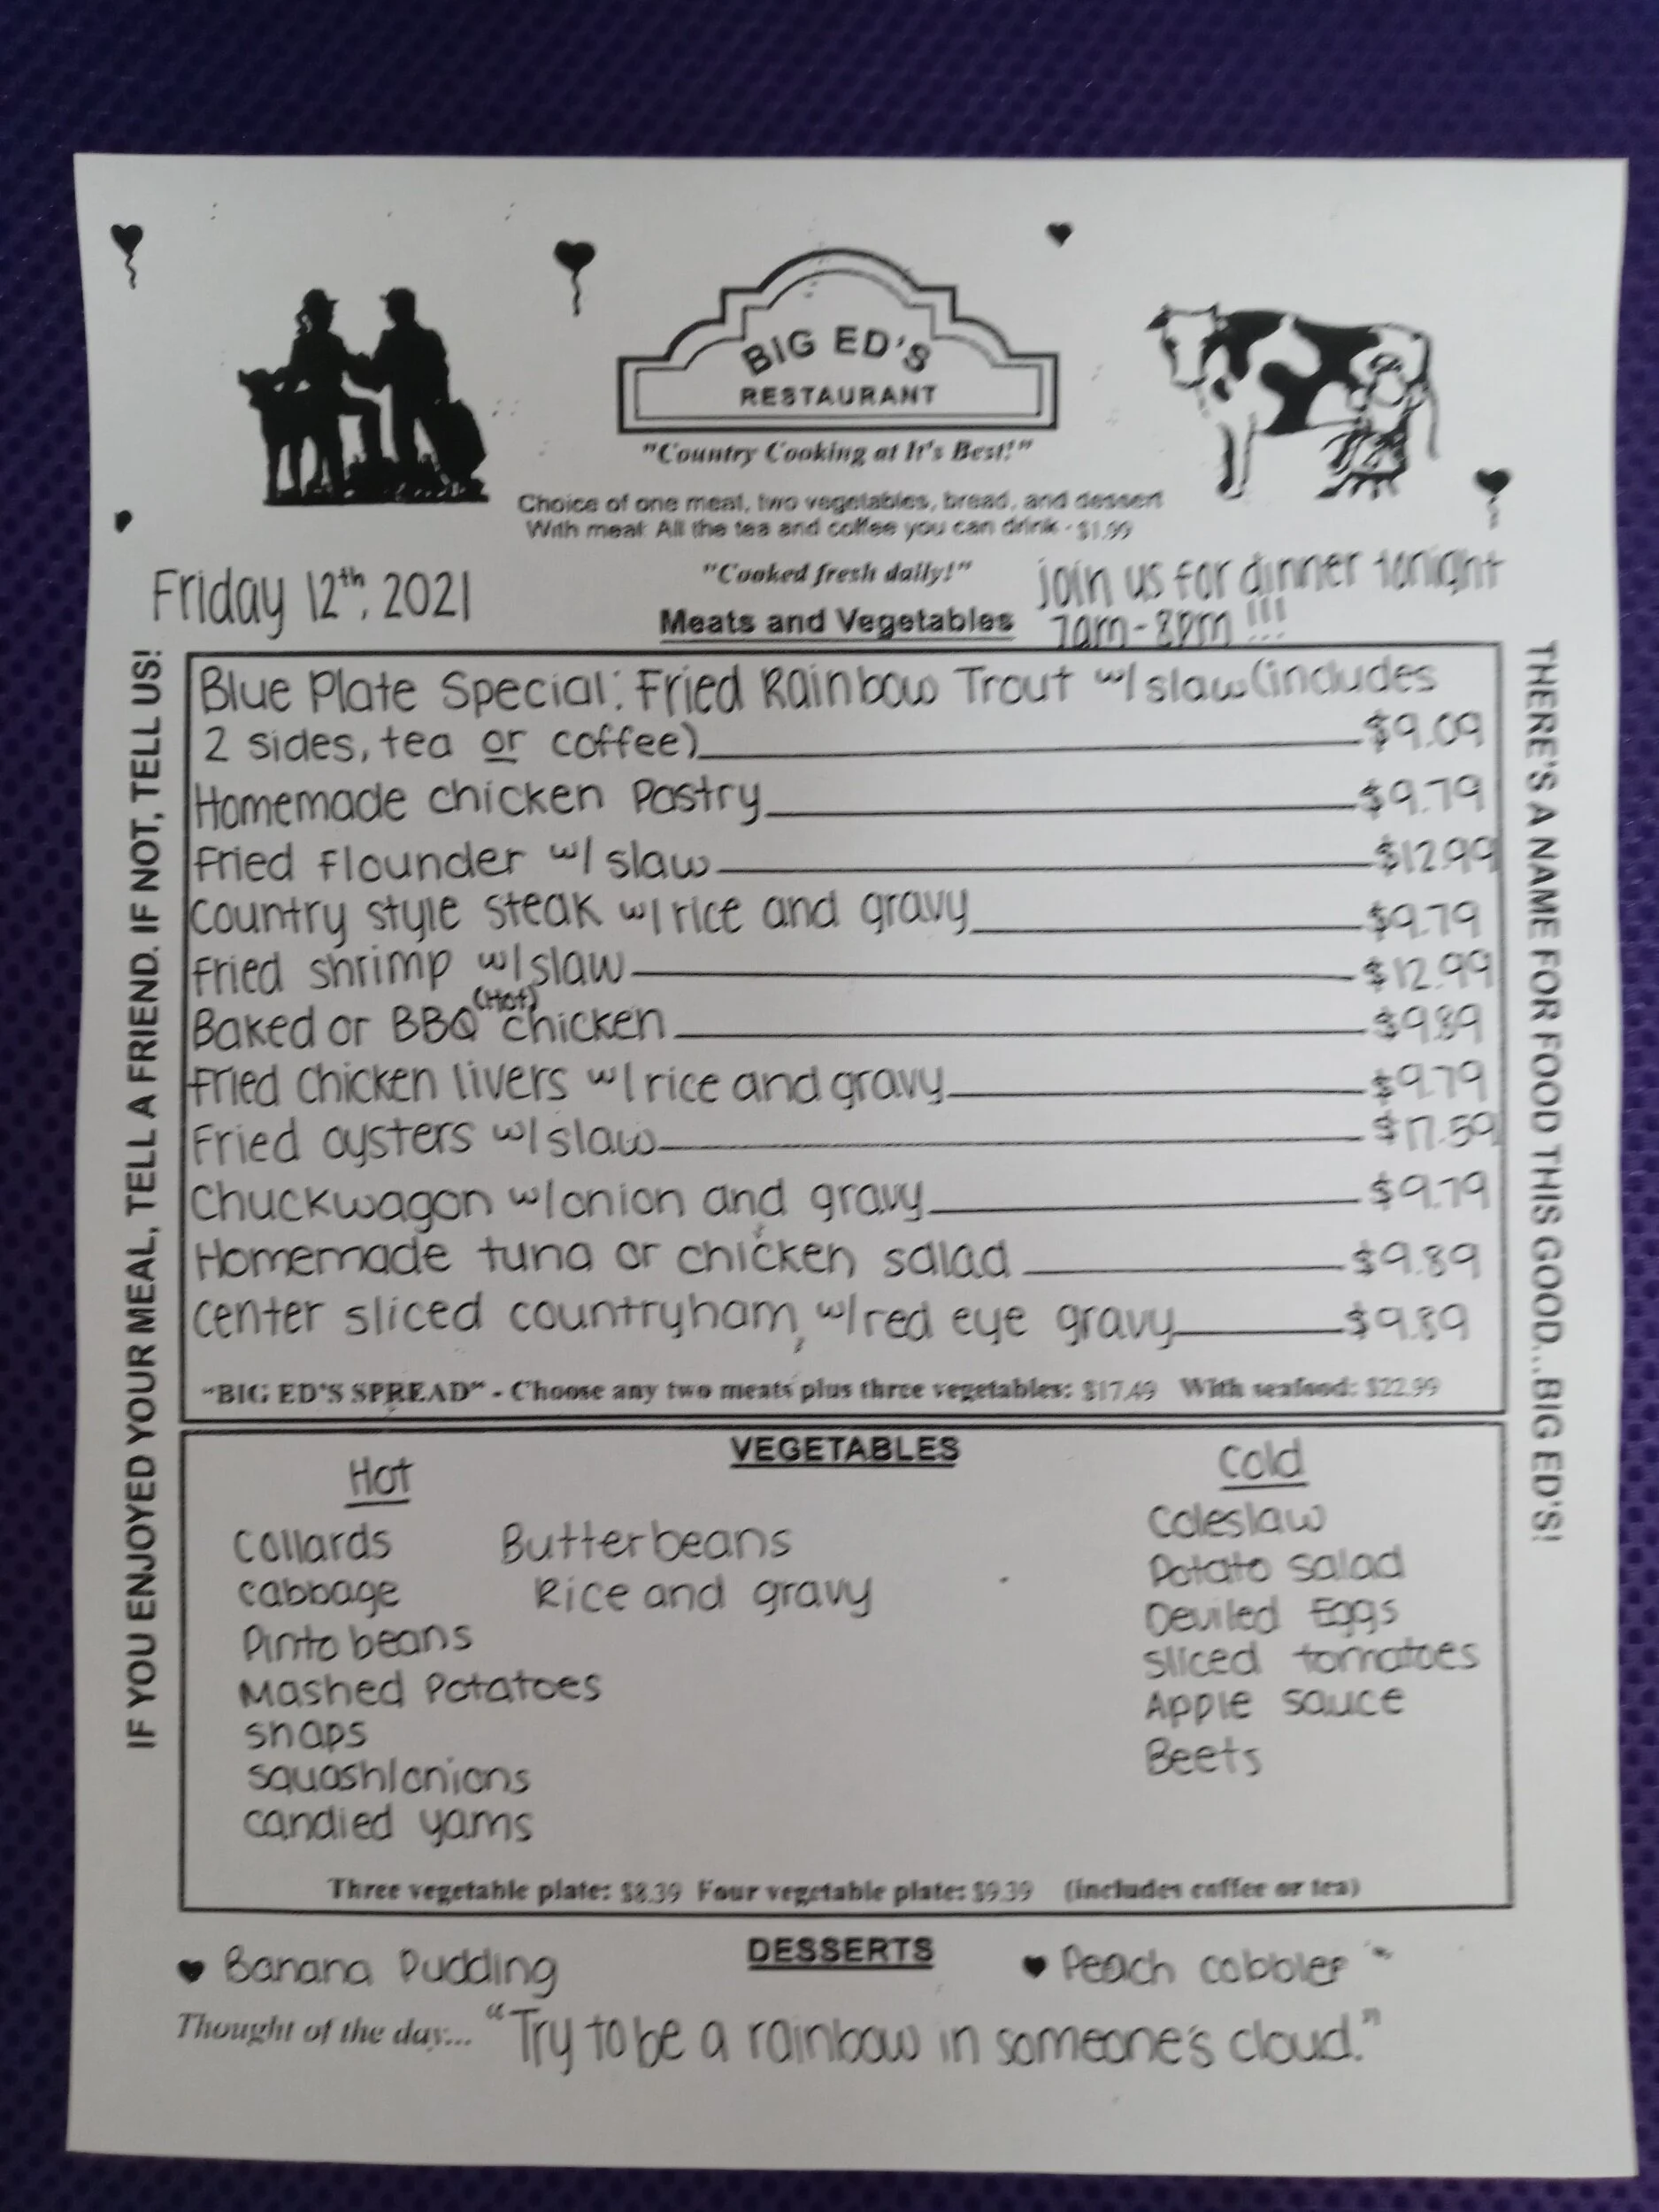 BIG ED'S
RESTAURANT
"Country Cooking at It's Best!"
Choice of one meat, two vegetables, bread, and dessert
With meal: All the tea and coffee you can drink - $1.99
"Cooked fresh daily!"
Friday 12th, 2021
join us for dinner tonight
7am-8pm!!!
Meats and Vegetables
Blue Plate Special: Fried Rainbow Trout w/slaw (includes
2 sides, tea or coffee) $9.09
Homemade chicken Pastry $9.79
Fried flounder w/ slaw $12.99
Country style steak w/rice and gravy $9.79
Fried shrimp w/slaw $12.99
Baked or BBQ (Hot) chicken $9.89
Fried chicken livers w/rice and gravy $9.79
Fried oysters w/slaw $17.59
Chuckwagon w/onion and gravy $9.79
Homemade tuna or chicken salad $9.89
center sliced countryham, w/red eye gravy $9.89
"BIG ED'S SPREAD" - Choose any two meats plus three vegetables: $17.49 With seafood: $22.99
VEGETABLES
Hot
Collards
cabbage
Pinto beans
Mashed Potatoes
snaps
squash/onions
candied yams
Butterbeans
Rice and gravy
Cold
Coleslaw
Potato salad
Deviled Eggs
sliced tomatoes
Apple sauce
Beets
Three vegetable plate: $8.39 Four vegetable plate: $9.39 (includes coffee or tea)
DESSERTS
♥ Banana Pudding
♥ Peach cobbler
Thought of the day... "Try to be a rainbow in someone's cloud."
IF YOU ENJOYED YOUR MEAL, TELL A FRIEND. IF NOT, TELL US!
THERE'S A NAME FOR FOOD THIS GOOD...BIG ED'S!